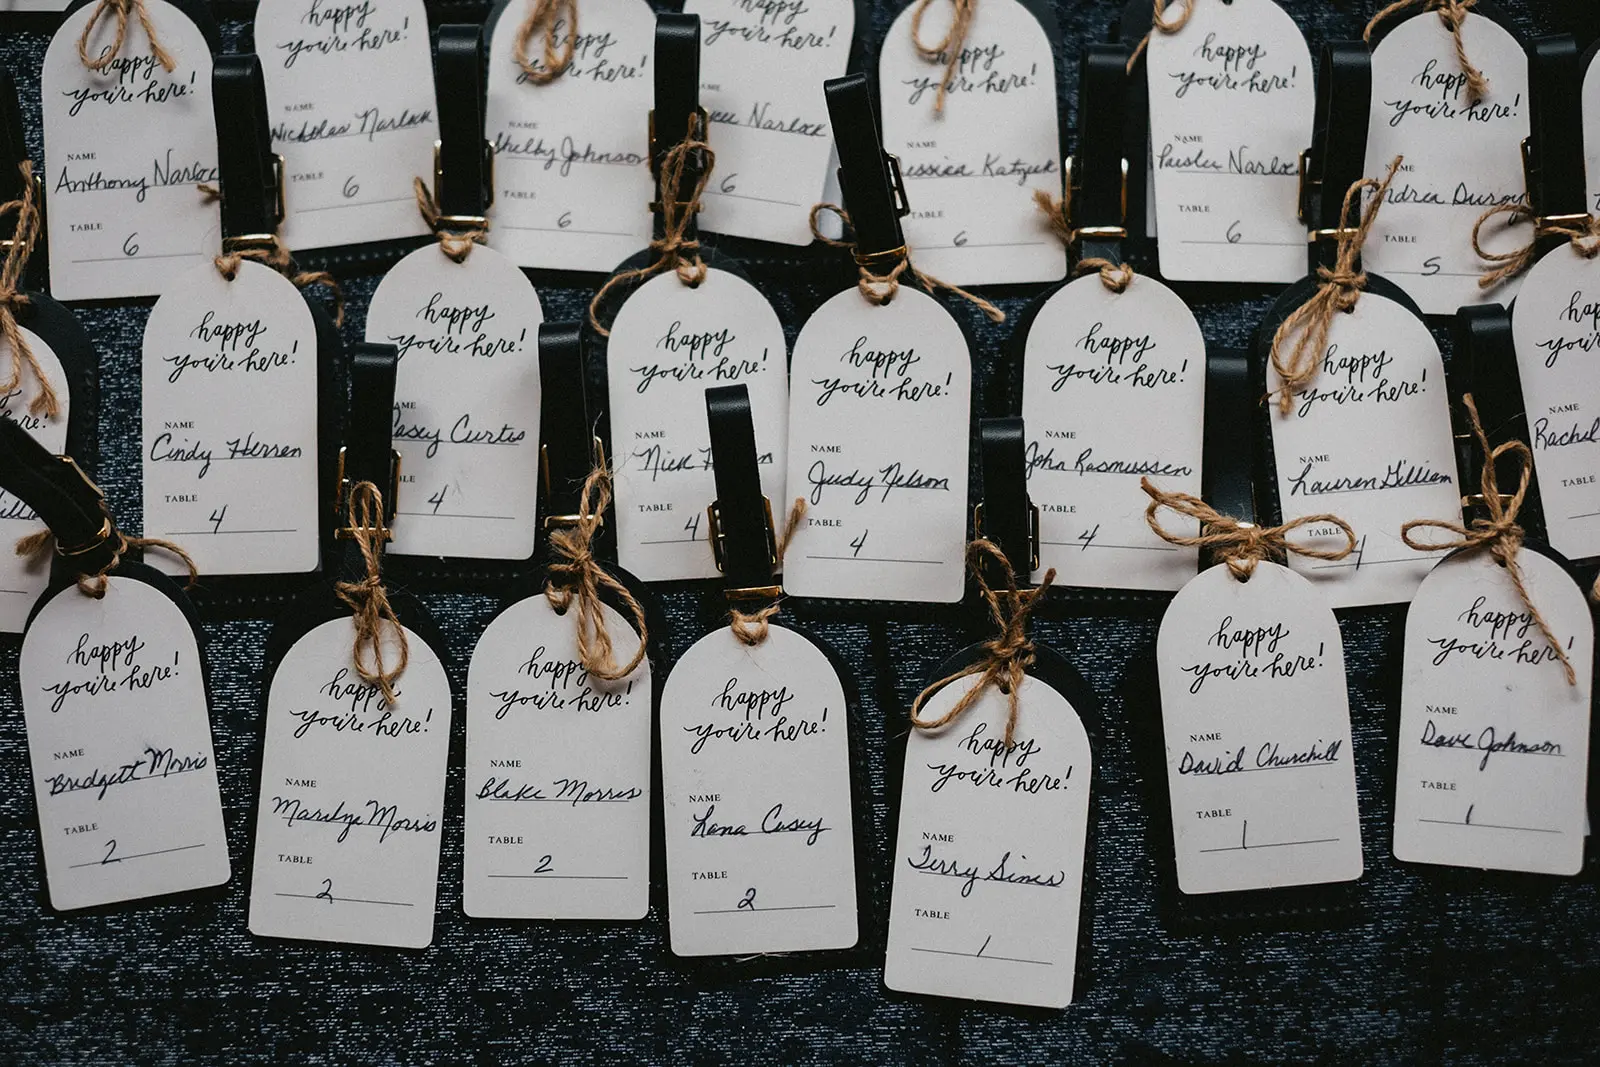 happy
you're here!
NAME
Anthony
TABLE
6
happy
you're here!
NAME
Nicholas Narlock
TABLE
6
happy
you're here!
NAME
Shelby Johnson
6
happy
you're here!
Narlock
6
happy
you're here!
Jessica
TABLE
6
happy
you're here!
NAME
TABLE
6
happy
you're here!
NAME
Andrea
TABLE
5
happy
you're here!
NAME
Cindy Herren
TABLE
4
happy
you're here!
NAME
Casey Curtis
4
happy
you're here!
NAME
Nick
TABLE
4
happy
you're here!
NAME
Judy Nelson
TABLE
4
happy
you're here!
NAME
John Rasmussen
TABLE
4
happy
you're here!
NAME
Lauren Gilliam
TABLE
4
NAME
Rachel
TABLE
happy
you're here!
NAME
Bridgett Morris
TABLE
2
happy
you're here!
NAME
Marilyn Morris
TABLE
2
happy
you're here!
NAME
Blake Morris
TABLE
2
happy
you're here!
NAME
Lana Casey
TABLE
2
happy
you're here!
NAME
Terry Sines
TABLE
1
happy
you're here!
NAME
David Churchill
TABLE
1
happy
you're here!
NAME
Dave Johnson
TABLE
1